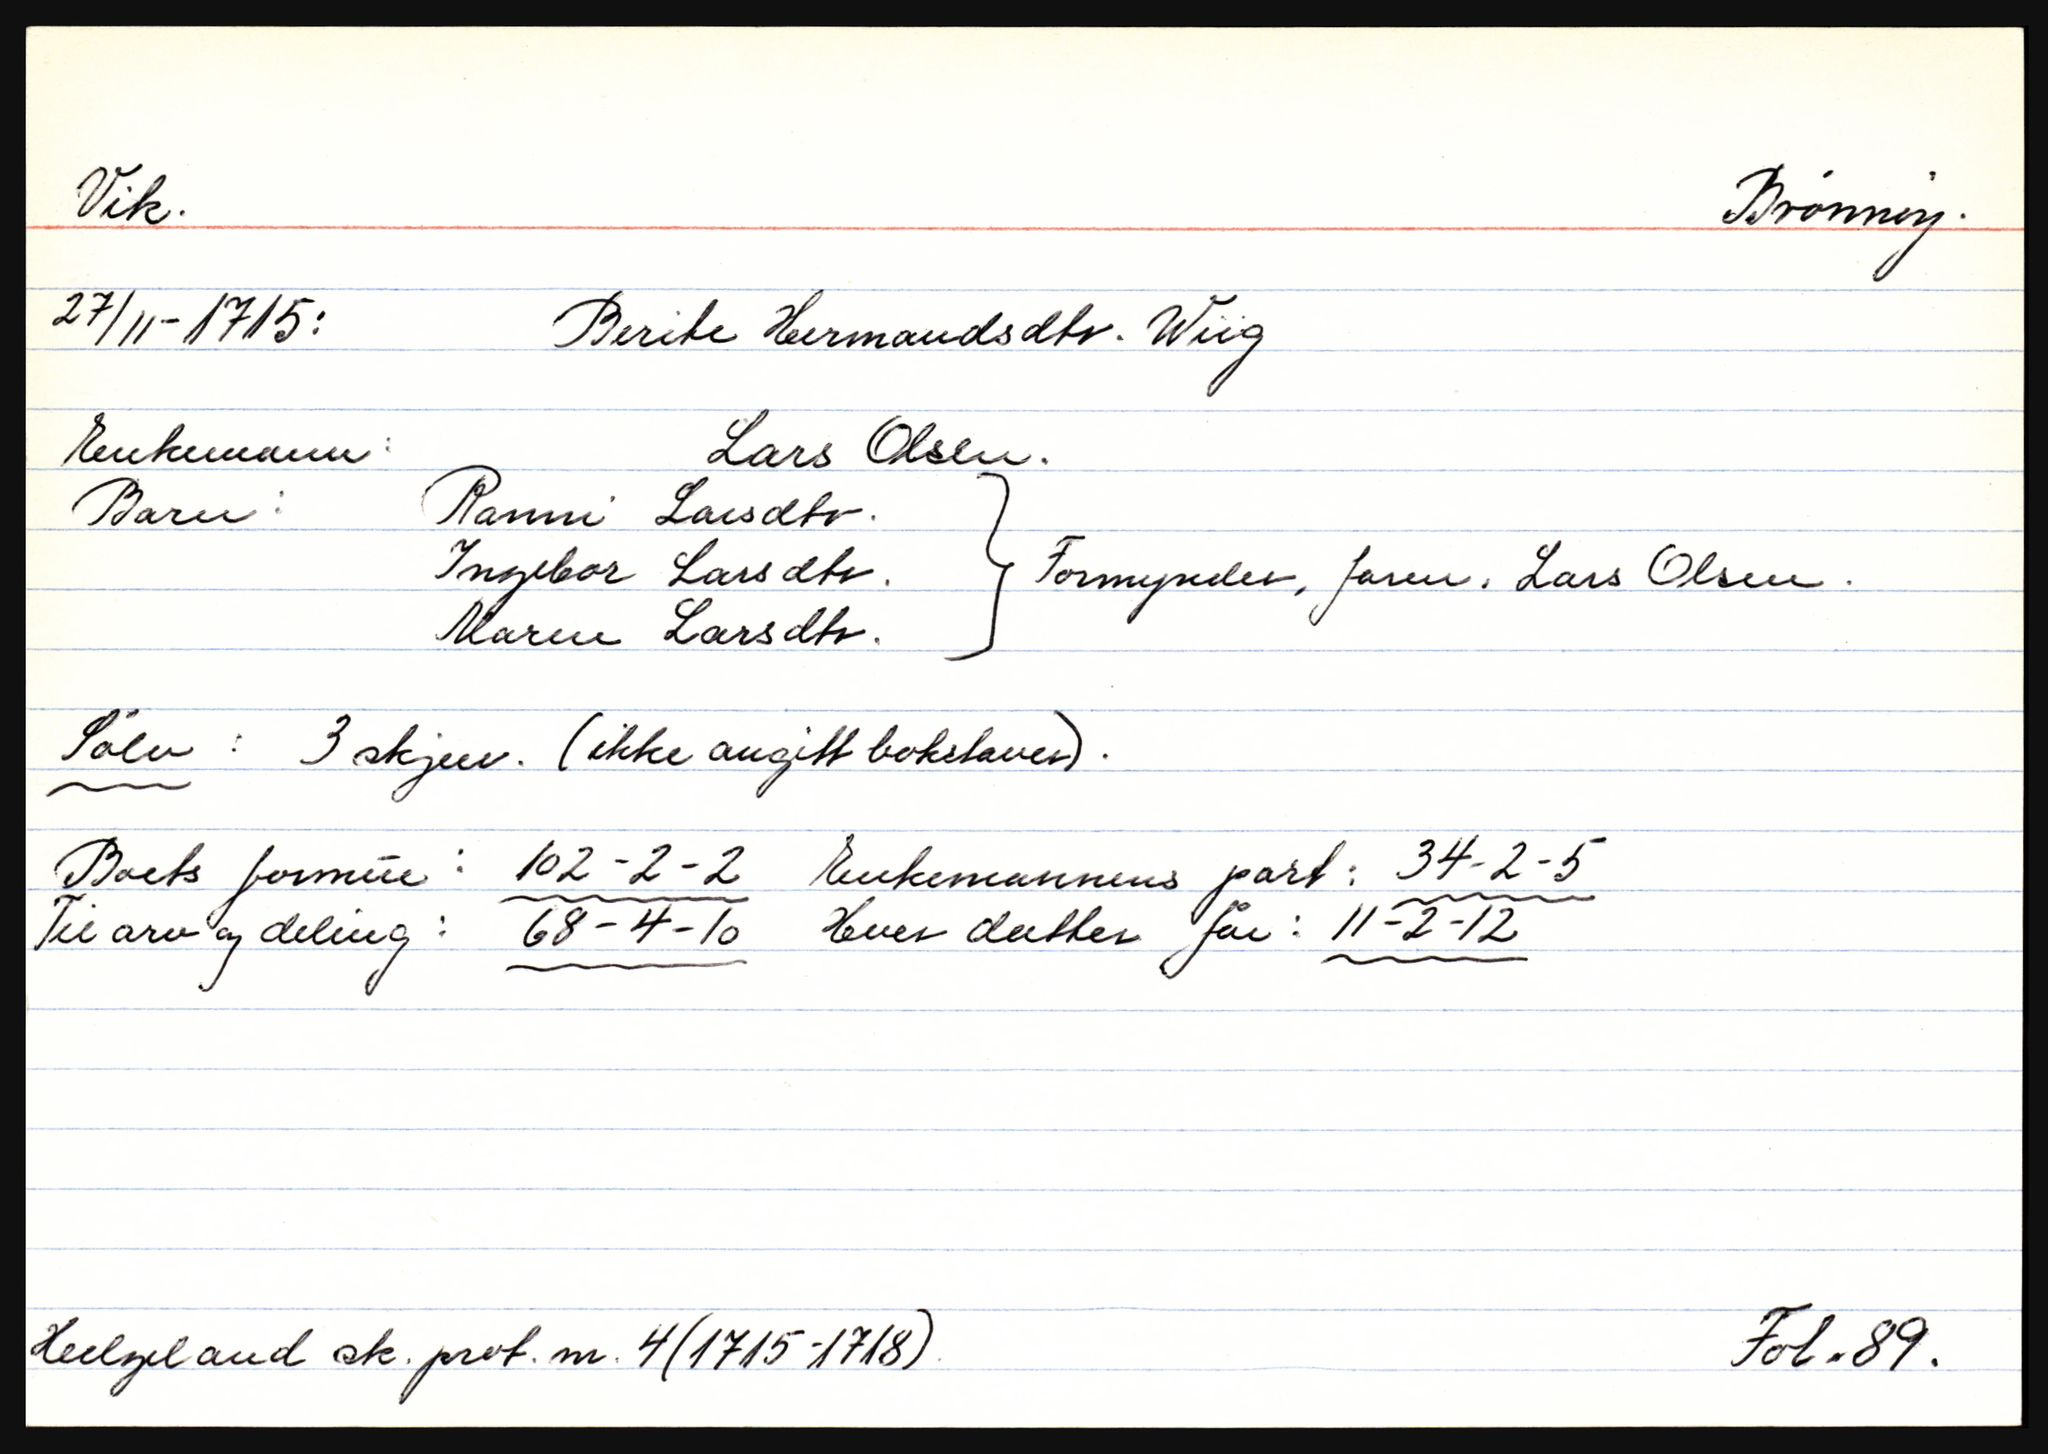 Vik. Brönnöy.
27/11-1715: Berite Hermandsdtr. Wiig
Enkemann: Lars Olsen.
Barn: Ranni Larsdtr.
Ingebor Larsdtr. } Formynder, faren, Lars Olsen.
Maren Larsdtr.
Sölv: 3 skjeer. (ikke angitt bokstaver).
Boets formue: 102-2-2 Enkemannens part: 34-2-5
Til arv og deling: 68-4-10 Hver datter får: 11-2-12
Helgeland sk. prot. nr. 4 (1715-1718) Fol. 89.